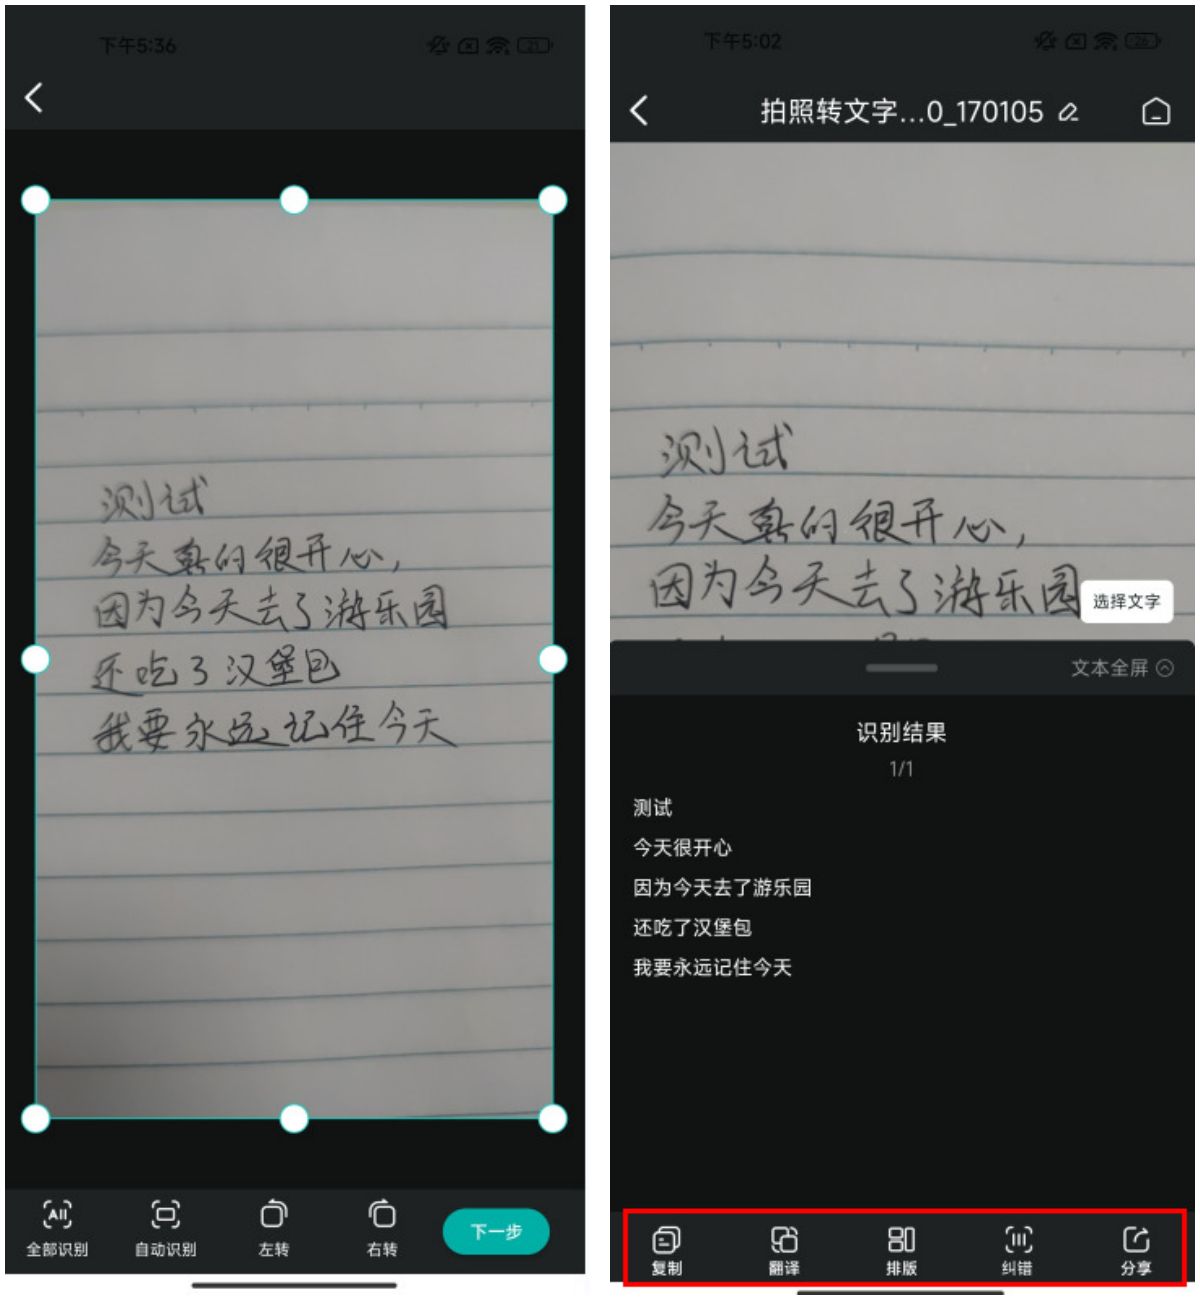 下午5:36
21
测试
今天真的很开心,
因为今天去了游乐园
还吃了汉堡包
我要永远记住今天
All
全部识别
自动识别
左转
右转
下一步
下午5:02
26
拍照转文字...0_170105
测试
今天真的很开心,
因为今天去了游乐园
选择文字
文本全屏
识别结果
1/1
测试
今天很开心
因为今天去了游乐园
还吃了汉堡包
我要永远记住今天
复制
翻译
排版
纠错
分享